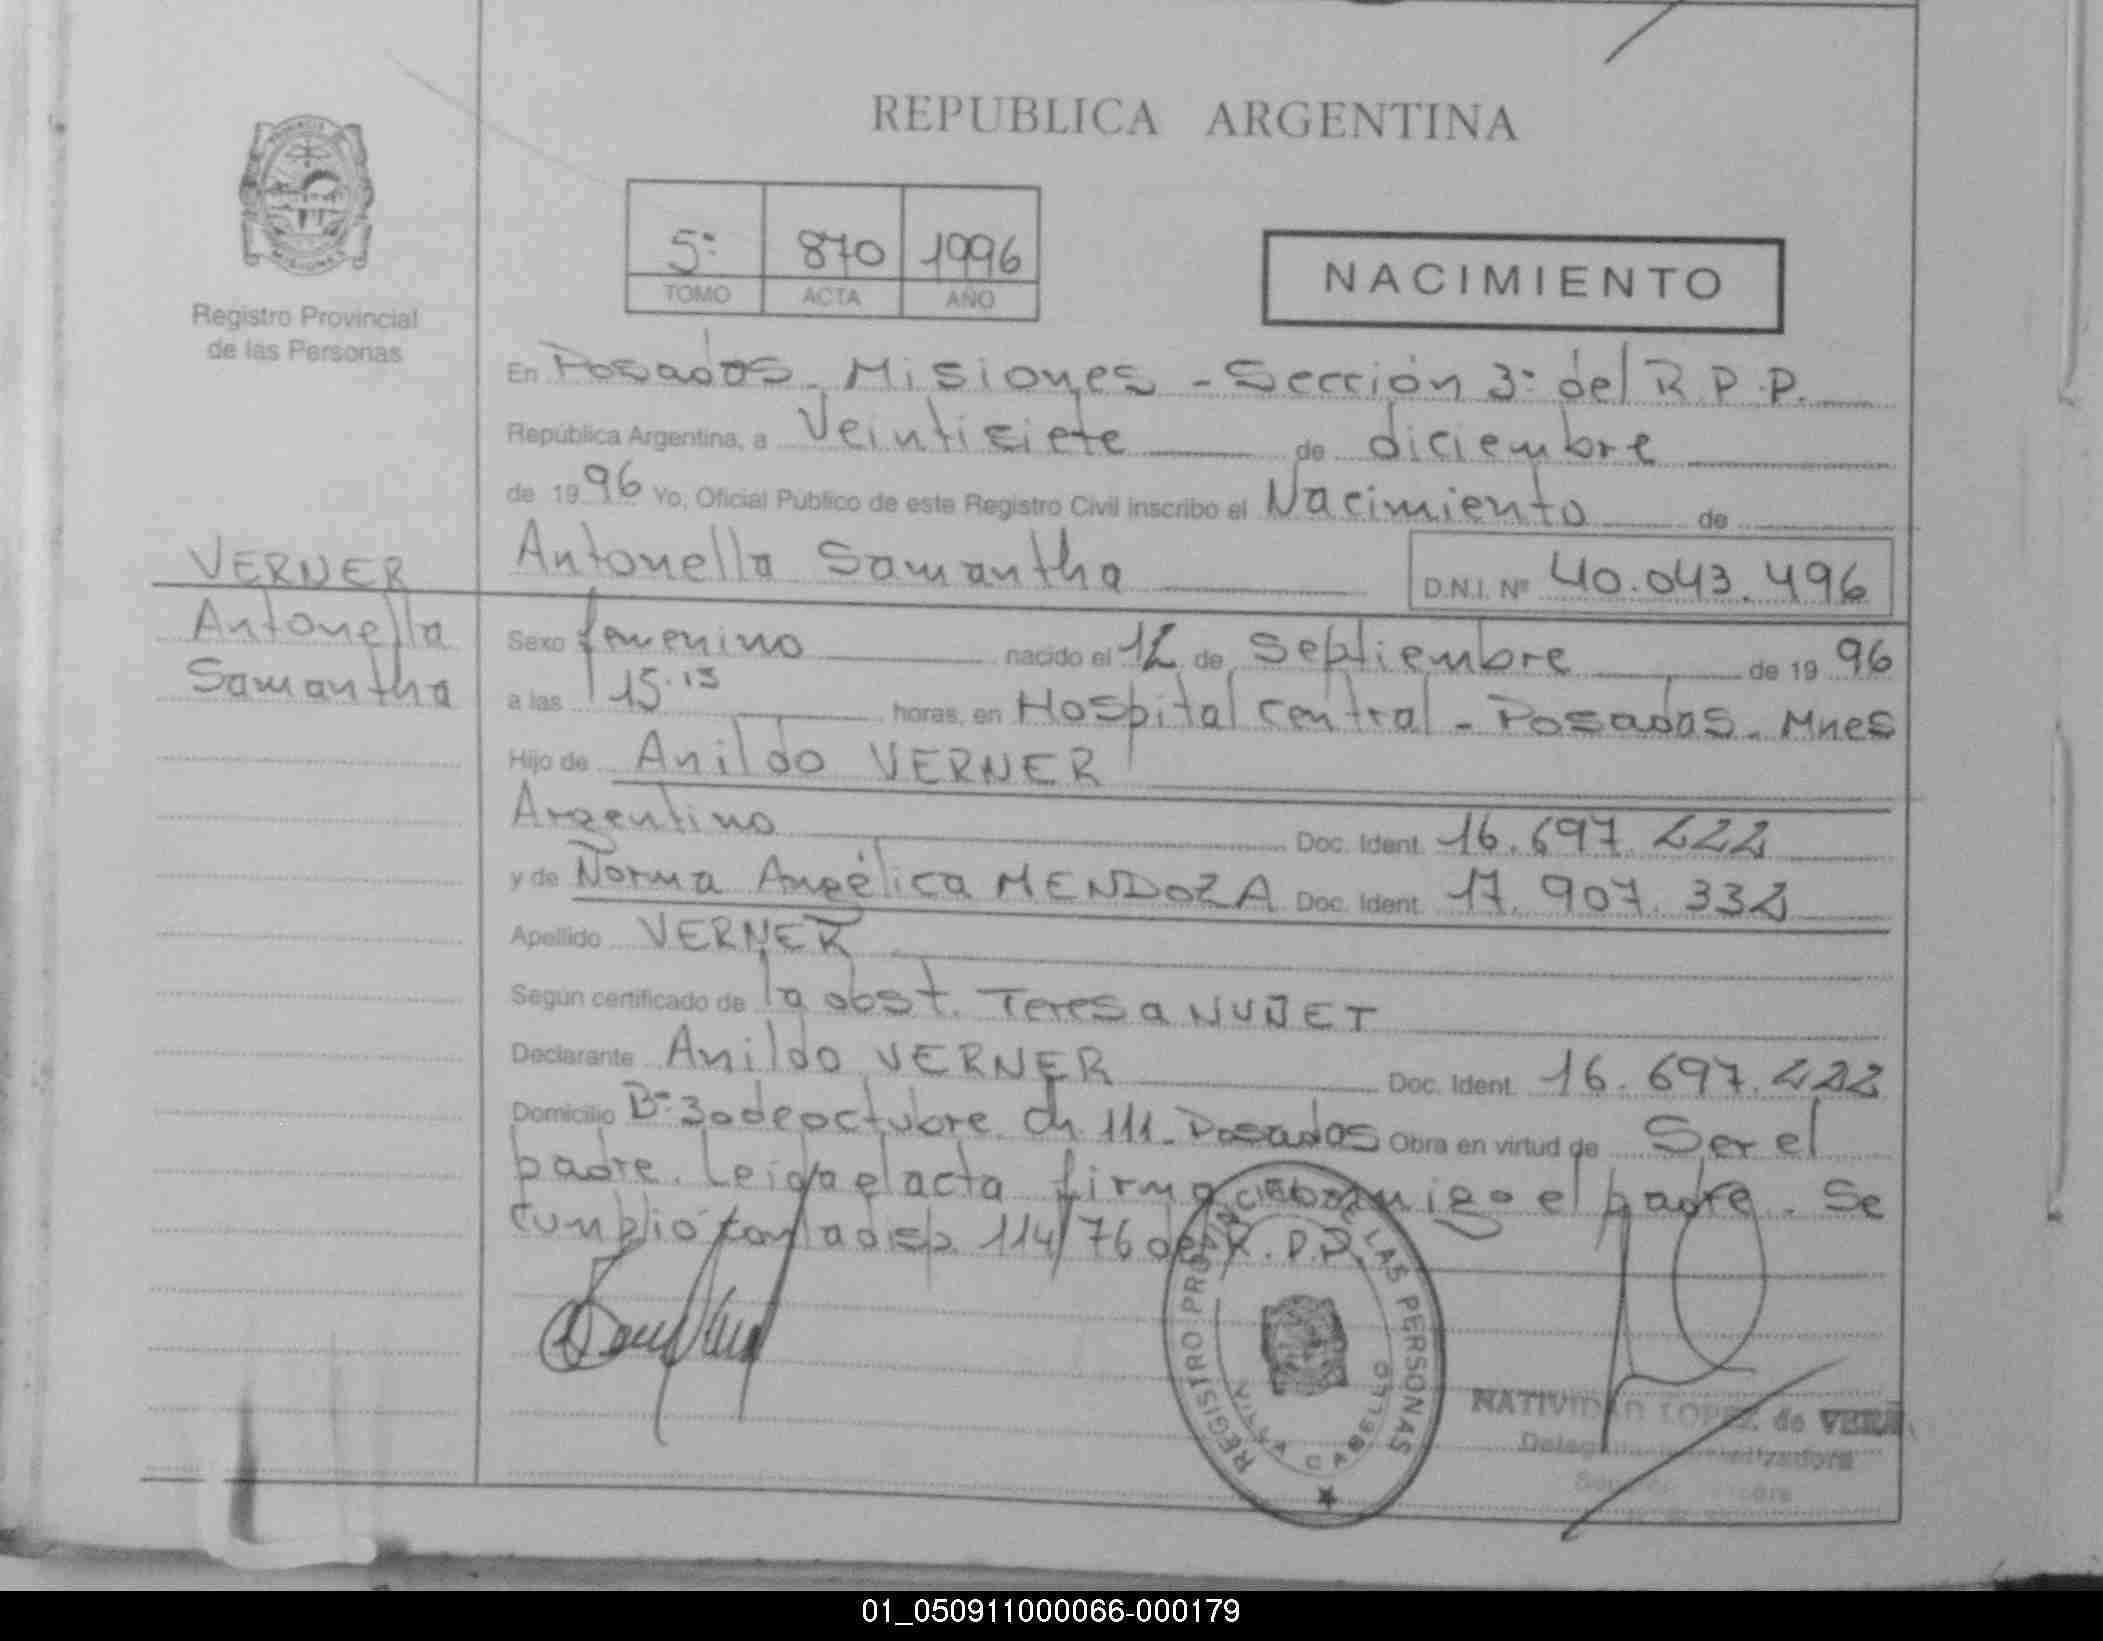 REPUBLICA ARGENTINA
5º 870 1996
TOMO ACTA AÑO
NACIMIENTO
Registro Provincial
de las Personas
En Posadas - Misiones - Sección 3º del R.P.P.
República Argentina, a Veintisiete de diciembre
de 1996 Yo, Oficial Público de este Registro Civil inscribo el Nacimiento de
Antonella Samantha D.N.I. Nº 40.043.496
VERNER
Antonella
Samantha
Sexo femenino nacido el 12 de Septiembre de 1996
a las 15.15 horas, en Hospital central - Posadas - Mnes
Hijo de Anildo VERNER
Argentino Doc. Ident. 16.697.222
y de Norma Angélica MENDOZA Doc. Ident. 17.907.332
Apellido VERNER
Según certificado de la obst. Teresa NUÑET
Declarante Anildo VERNER Doc. Ident. 16.697.222
Domicilio Bº 30 de octubre Ch. 111 - Posadas Obra en virtud de Ser el
padre. Leida el acta firma conmigo el padre. Se
cumplió con la disp. 114/76 del R.P.P.
REGISTRO PROVINCIAL DE LAS PERSONAS
VILLA CABELLO
NATIVIDAD LOPEZ de
01_050911000066-000179